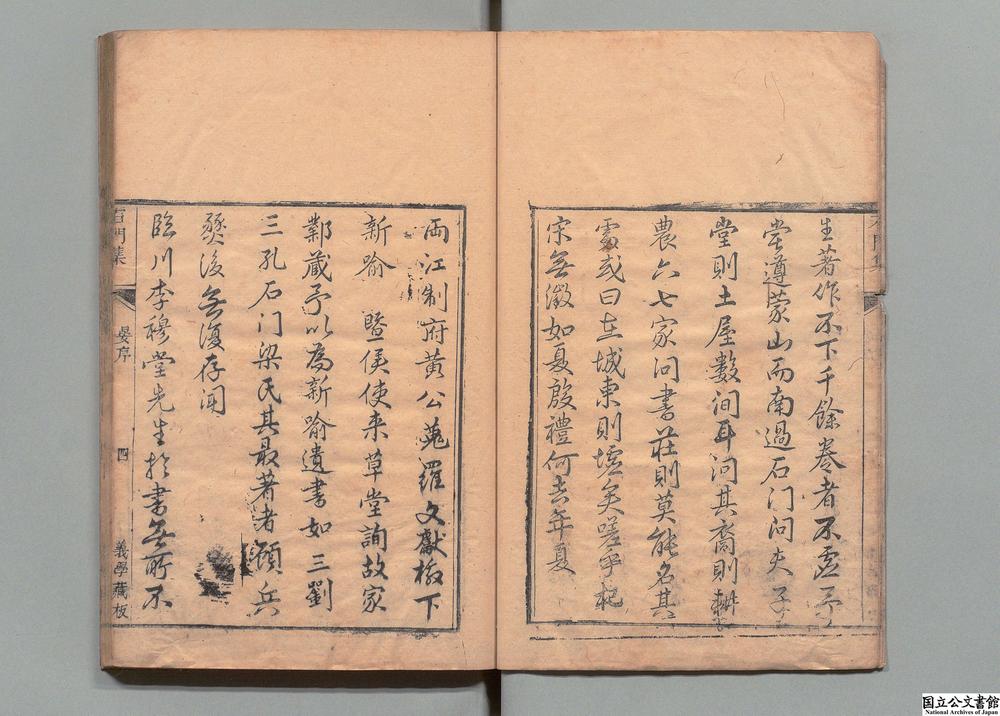 生著作不下千餘卷者不虛予
嘗遵蒙山而南過石门问夫子
堂则土屋數间耳问其裔则耕
農六七家问書莊则莫能名其
處或曰在城東则墟矣嗟乎杞
宋無徵如夏殷禮何去年夏
兩江制府黄公蒐羅文獻檄下
新喻 暨侯使来草堂詢故家
鄴藏予以為新喻遺書如三劉
三孔石门梁氏其最著者顧兵
燹後無復存闻
臨川李穆堂先生於書無所不
石門集
晏序
四
義學藏板
国立公文書館
National Archives of Japan